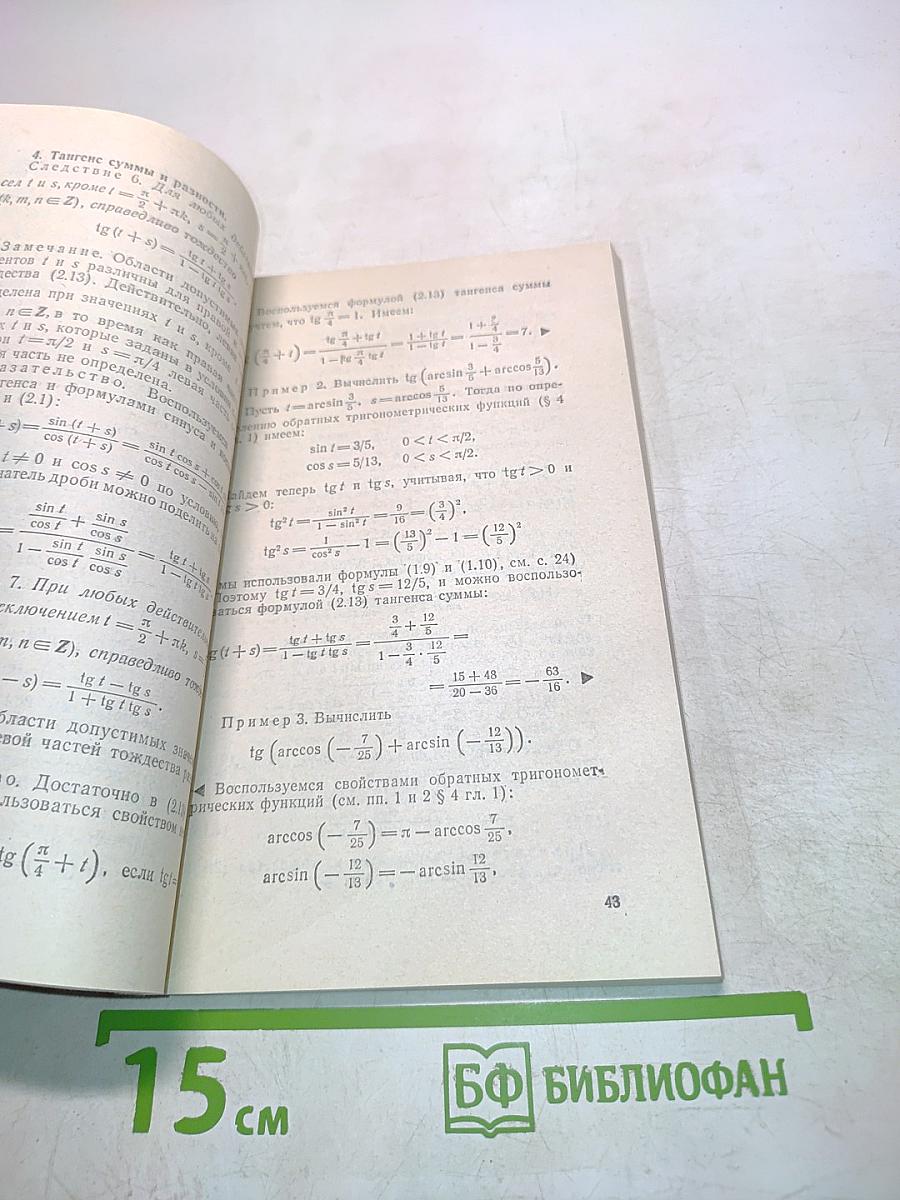 4. Тангенс суммы и разности.
Следствие 6. Для любых
сел t и s, кроме t = π/2 + πk, s = π/2 +
(k, m, n ∈ Z), справедливо тождество
tg (t + s) = (tg t + tg s)/(1 − tg t tg s).
Замечание. Области допустимых
ентов t и s различны для правой и
дества (2.13). Действительно, левая
делена при значениях t и s, кроме
n ∈ Z, в то время как правая
х t и s, которые заданы в условии
ри t = π/2 и s = π/4 левая часть
я часть не определена.
азательство. Воспользуемся
генса и формулами синуса и
и (2.1):
+ s) = sin (t + s)/cos (t + s) = (sin t cos s + cos t
t ≠ 0 и cos s ≠ 0 по условию,
натель дроби можно поделить на
= (sin t/cos t + sin s/cos s)/(1 − sin t/cos t · sin s/cos s) = (tg t + tg s)/(1 − tg t tg s)
7. При любых действитель
сключением t = π/2 + πk, s =
m, n ∈ Z), справедливо тож
− s) = (tg t − tg s)/(1 + tg t tg s).
бласти допустимых значе
евой частей тождества раз
о. Достаточно в (2.1
льзоваться свойством
tg (π/4 + t), если tg t =
Воспользуемся формулой (2.13) тангенса суммы
учтем, что tg π/4 = 1. Имеем:
(π/4 + t) = (tg π/4 + tg t)/(1 − tg π/4 tg t) = (1 + tg t)/(1 − tg t) = (1 + 3/4)/(1 − 3/4) = 7. ▶
Пример 2. Вычислить tg (arcsin 3/5 + arccos 5/13).
Пусть t = arcsin 3/5, s = arccos 5/13. Тогда по опре-
лению обратных тригонометрических функций (§ 4
. 1) имеем:
sin t = 3/5, 0 < t < π/2,
cos s = 5/13, 0 < s < π/2.
айдем теперь tg t и tg s, учитывая, что tg t > 0 и
s > 0:
tg² t = sin² t/(1 − sin² t) = 9/16 = (3/4)²,
tg² s = 1/cos² s − 1 = (13/5)² − 1 = (12/5)²
мы использовали формулы (1.9) и (1.10), см. с. 24)
Поэтому tg t = 3/4, tg s = 12/5, и можно воспользо-
ваться формулой (2.13) тангенса суммы:
g (t + s) = (tg t + tg s)/(1 − tg t tg s) = (3/4 + 12/5)/(1 − 3/4 · 12/5) =
= (15 + 48)/(20 − 36) = − 63/16. ▶
Пример 3. Вычислить
tg (arccos (− 7/25) + arcsin (− 12/13)).
◀ Воспользуемся свойствами обратных тригономет-
рических функций (см. пп. 1 и 2 § 4 гл. 1):
arccos (− 7/25) = π − arccos 7/25,
arcsin (− 12/13) = − arcsin 12/13,
43
15 см
БФ БИБЛИОФАН